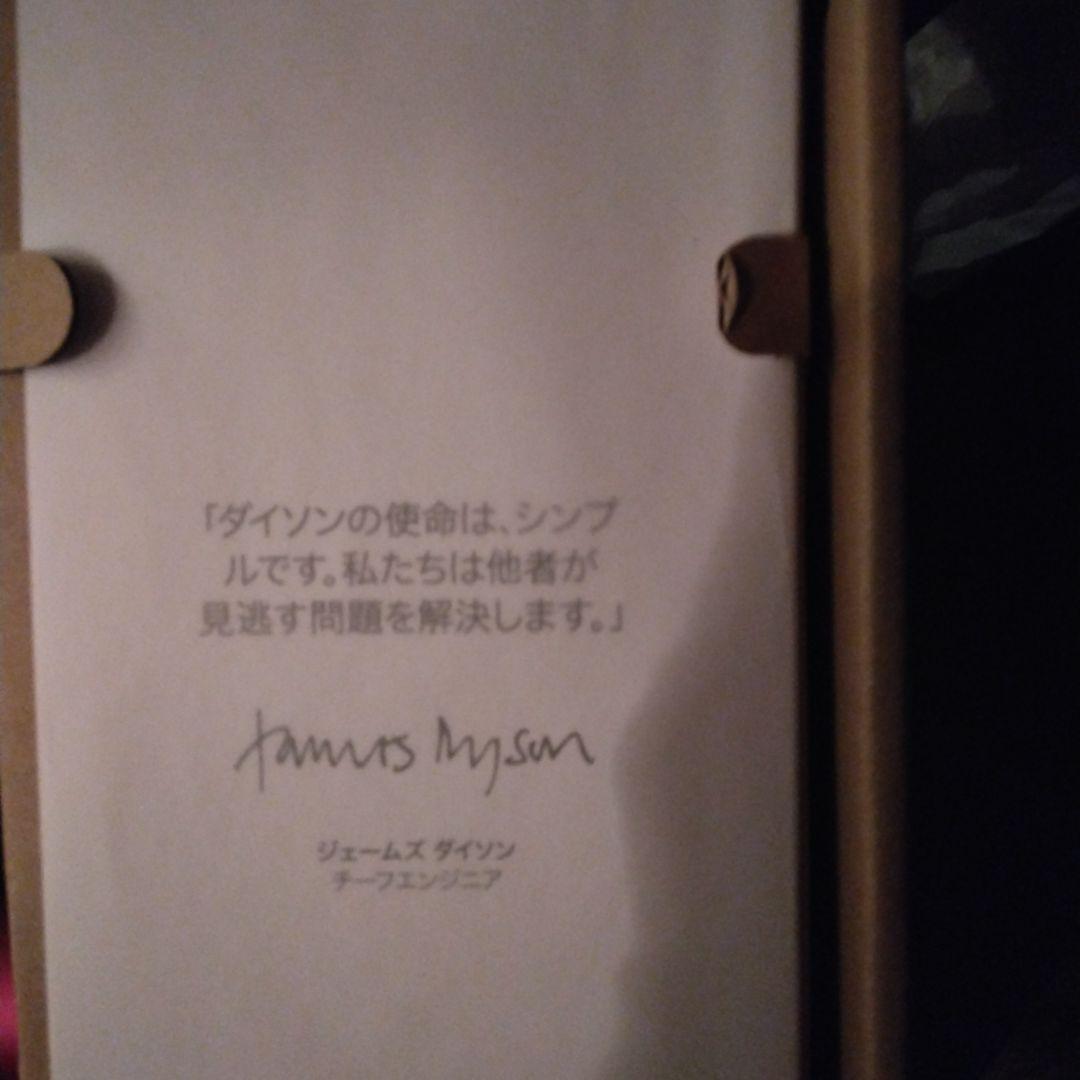 「ダイソンの使命は、シンプ
ルです。私たちは他者が
見逃す問題を解決します。」
James Dyson
ジェームズ ダイソン
チーフエンジニア